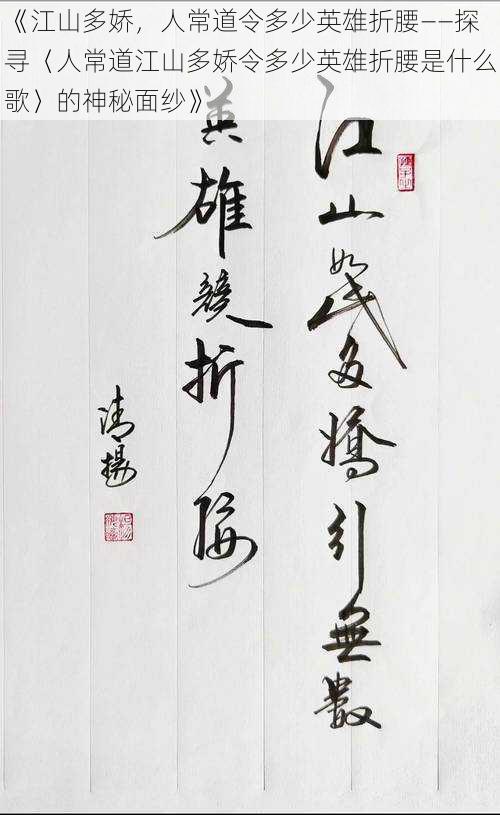 《江山多娇，人常道令多少英雄折腰——探
寻〈人常道江山多娇令多少英雄折腰是什么
歌〉的神秘面纱》
江山如此多嬌引無數
英雄競折腰
清揚